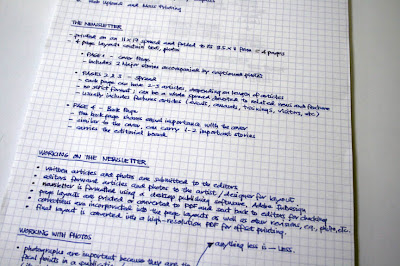 2. Peer Upload and Mass Printing
THE NEWSLETTER
- printed on an 11 x 17 spread and folded to 8.5 x 11 form = 4 pages
- 4 page layouts contain text, photos
• PAGE 1 - Cover Page
- includes 2 major stories accompanied by captioned photos
• PAGES 2 & 3 - Spread
- each page can have 2-3 articles, depending on length of articles
- no strict format; can be a whole spread devoted to related news and features
- usually includes features articles (events, awards, trainings, visitors, etc.)
• PAGE 4 - Back Page
- the back page shares equal importance with the cover
- similar to the cover, can carry 1-2 important stories
- carries the editorial board
WORKING ON THE NEWSLETTER
• written articles and photos are submitted to the editors
• editors forward articles and photos to the artist/designer for layout
• newsletter is formatted using a desktop publishing software, Adobe InDesign
• page layouts are printed or converted to PDF and sent back to editors for checking
• corrections are incorporated into the page layouts as well as other revisions, e.g., photo, etc.
• final layout is converted into a high-resolution PDF for offset printing.
WORKING WITH PHOTOS
anything less is - less.
• photographs are important because they are the
focal points in a publication